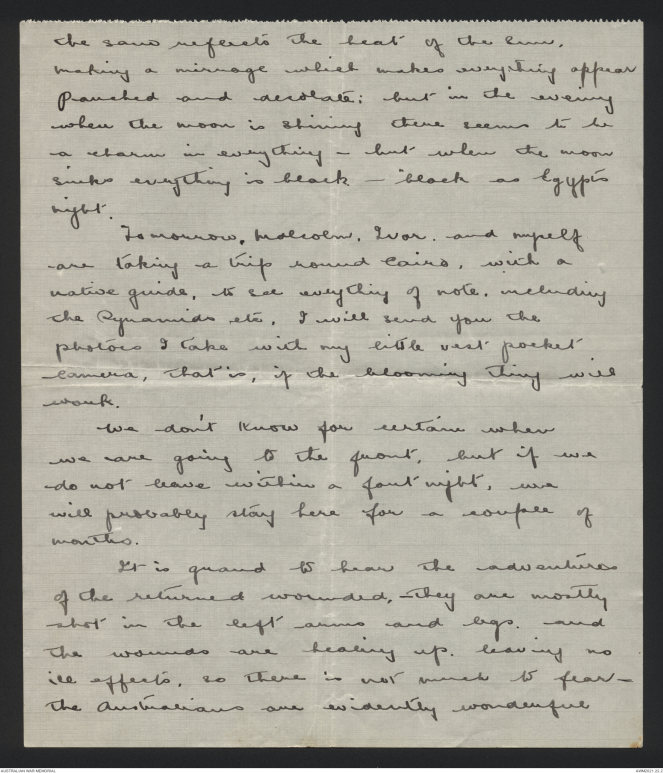 the sand reflects the heat of the sun,
making a mirrage which makes everything appear
Parched and desolate; but in the evening
when the moon is shining there seems to be
a charm in everything – but when the moon
sinks everything is black – black as Egypts
night.
Tomorrow, Malcolm, Ivor. and myself
are taking a trip round Cairo, with a
native guide, to see everything of note, including
the Pyramids etc, I will send you the
photoes I take with my little vest pocket
camera, that is, if the blooming thing will
work.
We don't know for certain when
we are going to the front, but if we
do not leave within a fortnight, we
will probably stay here for a couple of
months.
It is grand to hear the adventures
of the returned wounded, – they are mostly
shot in the left arms and legs. and
the wounds are healing up. leaving no
ill effects, so there is not much to fear –
the Australians are evidently wonderful
AUSTRALIAN WAR MEMORIAL